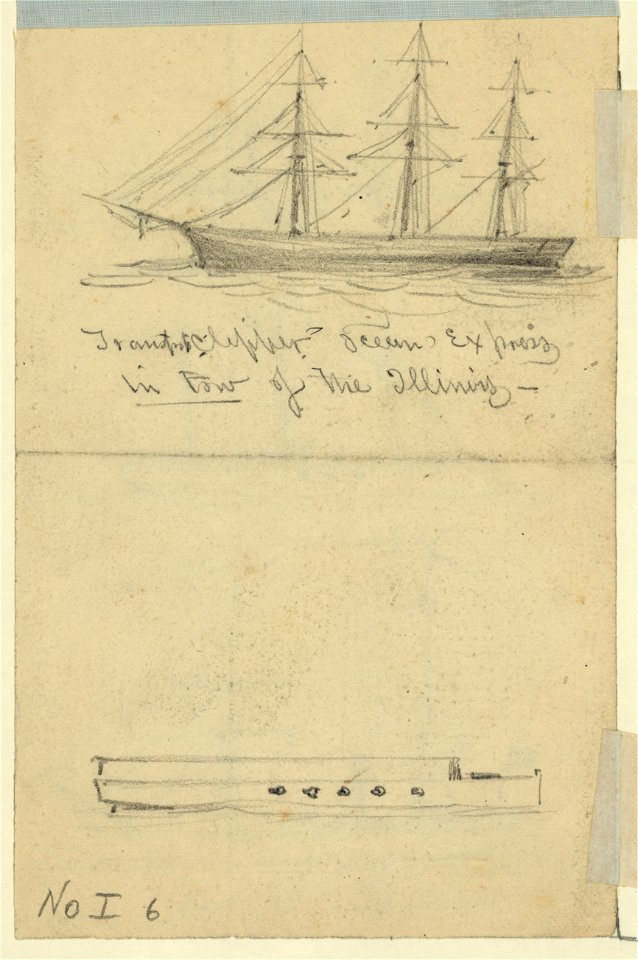 Transpt Clipper Ocean Express
in tow of the Illinois —
No I 6